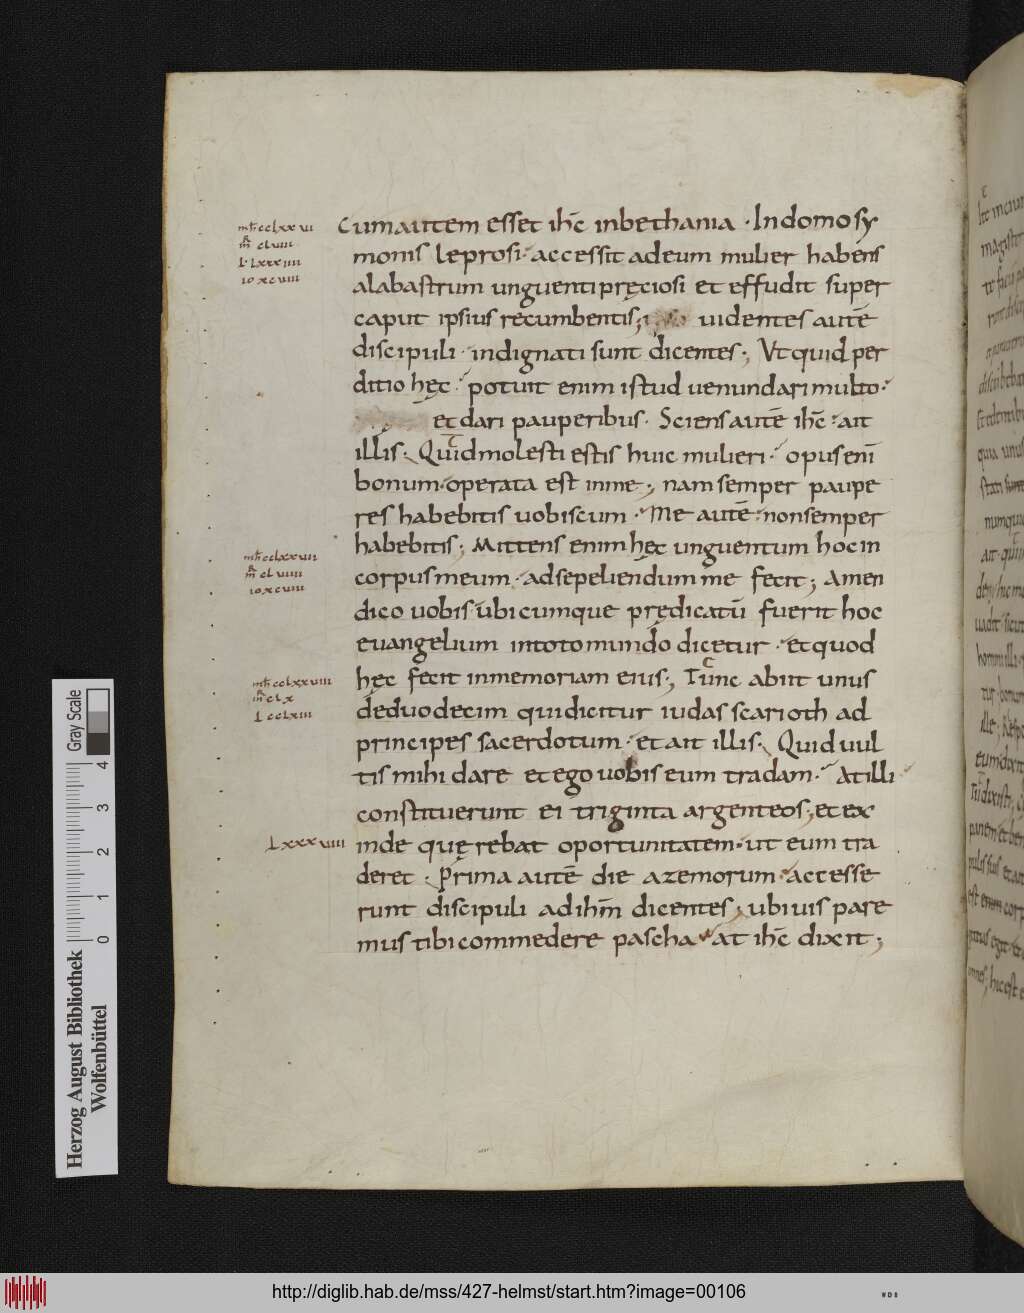 mt̄ cclxxvi
mr̄ clviii
l. lxxiiii
io xcviii
Cum autem esset ihc̄ inbethania · Indomo sy
monis leprosi · accessit adeum mulier habens
alabastrum unguenti pręciosi et effudit super
caput ipsius recumbentis; uidentes autē
discipuli · indignati sunt dicentes; Vt quid per
ditio hęc · potuit enim istud uenundari multo ·
et dari pauperibus · Sciens autē ihc̄ · ait
illis · Quid molesti estis huic mulieri · opus enī
bonum · operata est inme; nam semper paupe
res habebitis uobiscum · Me autē · non semper
mt̄ cclxxvii
mr̄ clviiii
io xcviii
habebitis; Mittens enim hęc unguentum hoc in
corpus meum · ad sepeliendum me fecit; Amen
dico uobis ubicumque prędicatū fuerit hoc
euangelium intoto mundo dicetur · et quod
mt̄ cclxxviii
mr̄ clx
l cclxiii
hęc fecit inmemoriam eius; Tunc abiit unus
deduodecim qui dicitur iudas scarioth ad
principes sacerdotum · et ait illis · Quid uul
tis mihi dare et ego uobis eum tradam · At illi
constituerunt ei triginta argenteos; et ex
lxxxviiii
inde quęrebat oportunitatem · ut eum tra
deret · Prima autē die azemorum · accesse
runt discipuli ad ihm̄ dicentes; ubi uis pare
mus tibi commedere pascha at ihc̄ dixit;
Gray Scale
0 1 2 3 4
Herzog August Bibliothek
Wolfenbüttel
http://diglib.hab.de/mss/427-helmst/start.htm?image=00106